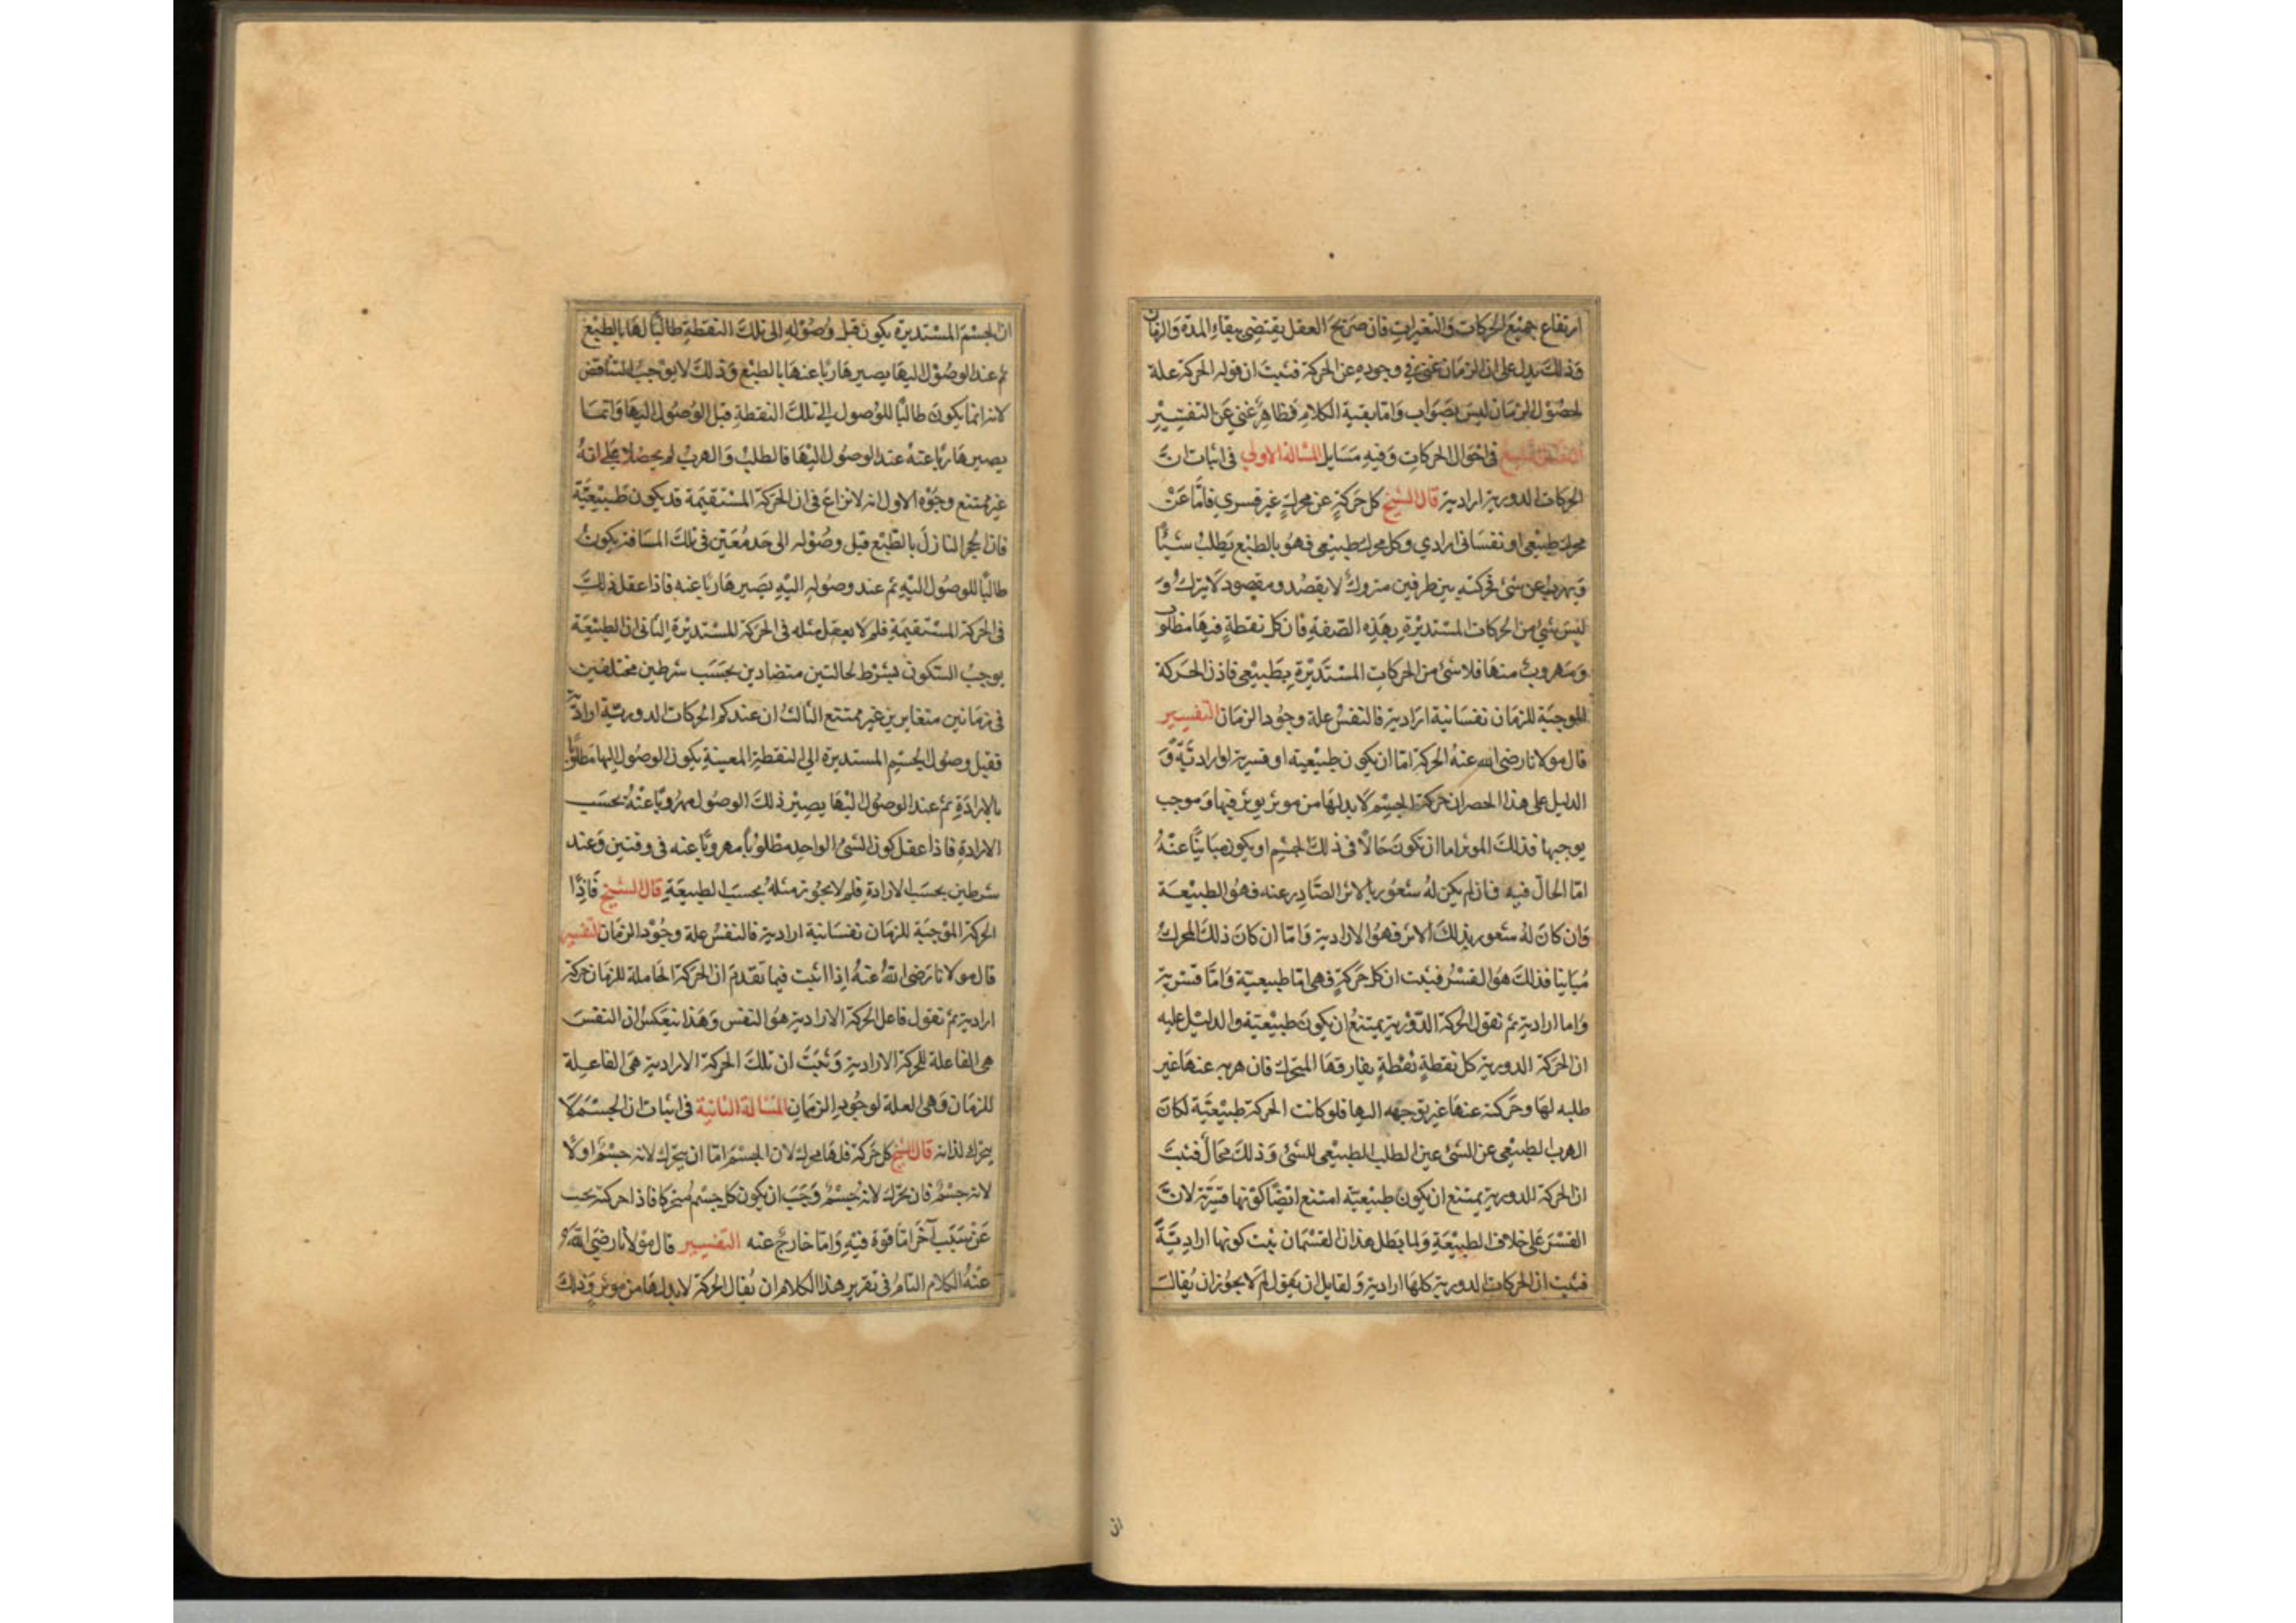 ارتفاع جميع الحركات والتغيرات فان صريح العقل يقتضى بقاء المدة والزمان
وذلك يدل على ان الزمان غنى في وجوده عن الحركة فثبت ان قوله الحركة علة
لحصول الزمان ليس بصواب واما بقية الكلام فظاهر غني عن التفسير
في احوال الحركات وفيه مسايل المسالة الاولي في اثبات انّ
الحركات الدورية ارادية قال الشيخ كل حركة عن محرك غير قسري فامّا عن
محرك طبيعي او نفساني ارادي وكل محرك طبيعي فهو بالطبع يطلب شيئًا
ويهرب عن شئ فحركته بين طرفين متروك لا يقصد ومقصود لا يترك و
ليس شئ من الحركات المستديرة بهذه الصفة فان كل نقطة فيها مطلوب
ومهروب منها فلا شئ من الحركات المستديرة بطبيعي فاذن الحركة
الموجبة للزمان نفسانية ارادية فالنفس علة وجود الزمان التفسير
قال مولانا رضى الله عنه الحركة امّا ان يكون طبيعية او قسرية او ارادية و
الدليل على هذا الحصر ان حركة الجسم لا بد لها من موثر يوثر فيها وموجب
يوجبها فذلك الموثر اما ان تكون حالًا فى ذلك الجسم او يكون مباينًا عنه
امّا الحالّ فيه فان لم يكن له شعور بالاثر الصّادر عنه فهو الطبيعة
وان كان له شعور بذلك الاثر فهو الارادية وامّا ان كان ذلك المحرك
مباينا فذلك هو القسر فثبت ان كل حركة فهى امّا طبيعيّة وامّا قسرية
واما ارادية ثم نقول الحركة الدّورية يمتنع ان يكون طبيعيّة والدليل عليه
ان الحركة الدورية كل نقطةٍ نقطةٍ يفارقها المتحرك فان هربه عنها غير
طلبه لها وحركته عنها غير توجهه اليها فلو كانت الحركة طبيعيّة لكان
الهرب الطبيعي عن الشئ عين الطلب الطبيعي للشئ وذلك محال فثبت
ان الحركة الدورية يمتنع ان يكون طبيعيّة امتنع ايضًا كونها قسريّة لانّ
القسر على خلاف الطبيعة ولما بطل هذان القسمان ثبت كونها اراديّةً
فثبت ان الحركات الدورية كلها ارادية ولقايل ان يقول لم لا يجوز ان يُقال
ان
ان الجسم المستديرة يكون قبل وصوله الى تلك النقطة طالبًا لها بالطبع
ثم عند الوصول اليها يصير هاربًا عنها بالطبع وذلك لا يوجب التناقض
لانه انما يكون طالبًا للوصول الى تلك النقطة قبل الوصول اليها وانما
يصير هاربًا عنه عند الوصول اليها فالطلب والهرب لم يحصلا على انه
غير ممتنع وجوه الاول انه لا نزاع فى ان الحركة المستقيمة قد يكون طبيعيّة
فان الحجر النازل بالطبع قبل وصوله الى حد معيّن في تلك المسافة يكون
طالبًا للوصول اليه ثم عند وصوله اليه يصير هاربًا عنه فاذا عقل ذلك
فى الحركة المستقيمة فلم لا يعقل مثله فى الحركة المستديرة الثانى ان الطبيعة
يوجب السكون بشرط لحالتين متضادين بحسب شرطين مختلفين
فى زمانين متغايرين غير ممتنع الثالث ان عندكم الحركات الدورية ارادية
فقبل وصول الجسيم المستديرة الى النقطة المعينة يكون الوصول اليها مطلوبًا
بالارادة ثم عند الوصول اليها يصير ذلك الوصول مهروبًا عنه بحسب
الارادة فاذا عقل كون الشئ الواحد مطلوبًا مهروبًا عنه فى وقتين وعند
شرطين بحسب الارادة فلم لا يجوز مثله بحسب الطبيعة قال الشيخ فاذًا
الحركة الموجبة للزمان نفسانية ارادية فالنفس علة وجود الزمان التفسير
قال مولانا رضى الله عنه اذا اثبت فيما تقدم ان الحركة الحاملة للزمان حركة
ارادية ثم نقول فاعل الحركة الارادية هو النفس وهذا ينعكس ان النفس
هى الفاعلة للحركة الارادية وثبت ان تلك الحركة الارادية هى الفاعلة
للزمان وهى العلة لوجود الزمان المسالة الثانية فى اثبات ان الجسم لا
يحرك لذاته قال الشيخ كل حركة فلها محرك لان الجسم امّا ان يتحرك لانه جسم او لا
لانه جسم فان تحرّك لانه جسم وجب ان يكون كل جسم متحركا فاذا حركته يجب
عن سبب آخر امّا قوة فيه وامّا خارج عنه التفسير قال مولانا رضى الله
عنه الكلام التام فى تقرير هذا الكلام ان يُقال الحركة لا بد لها من موثر وذلك